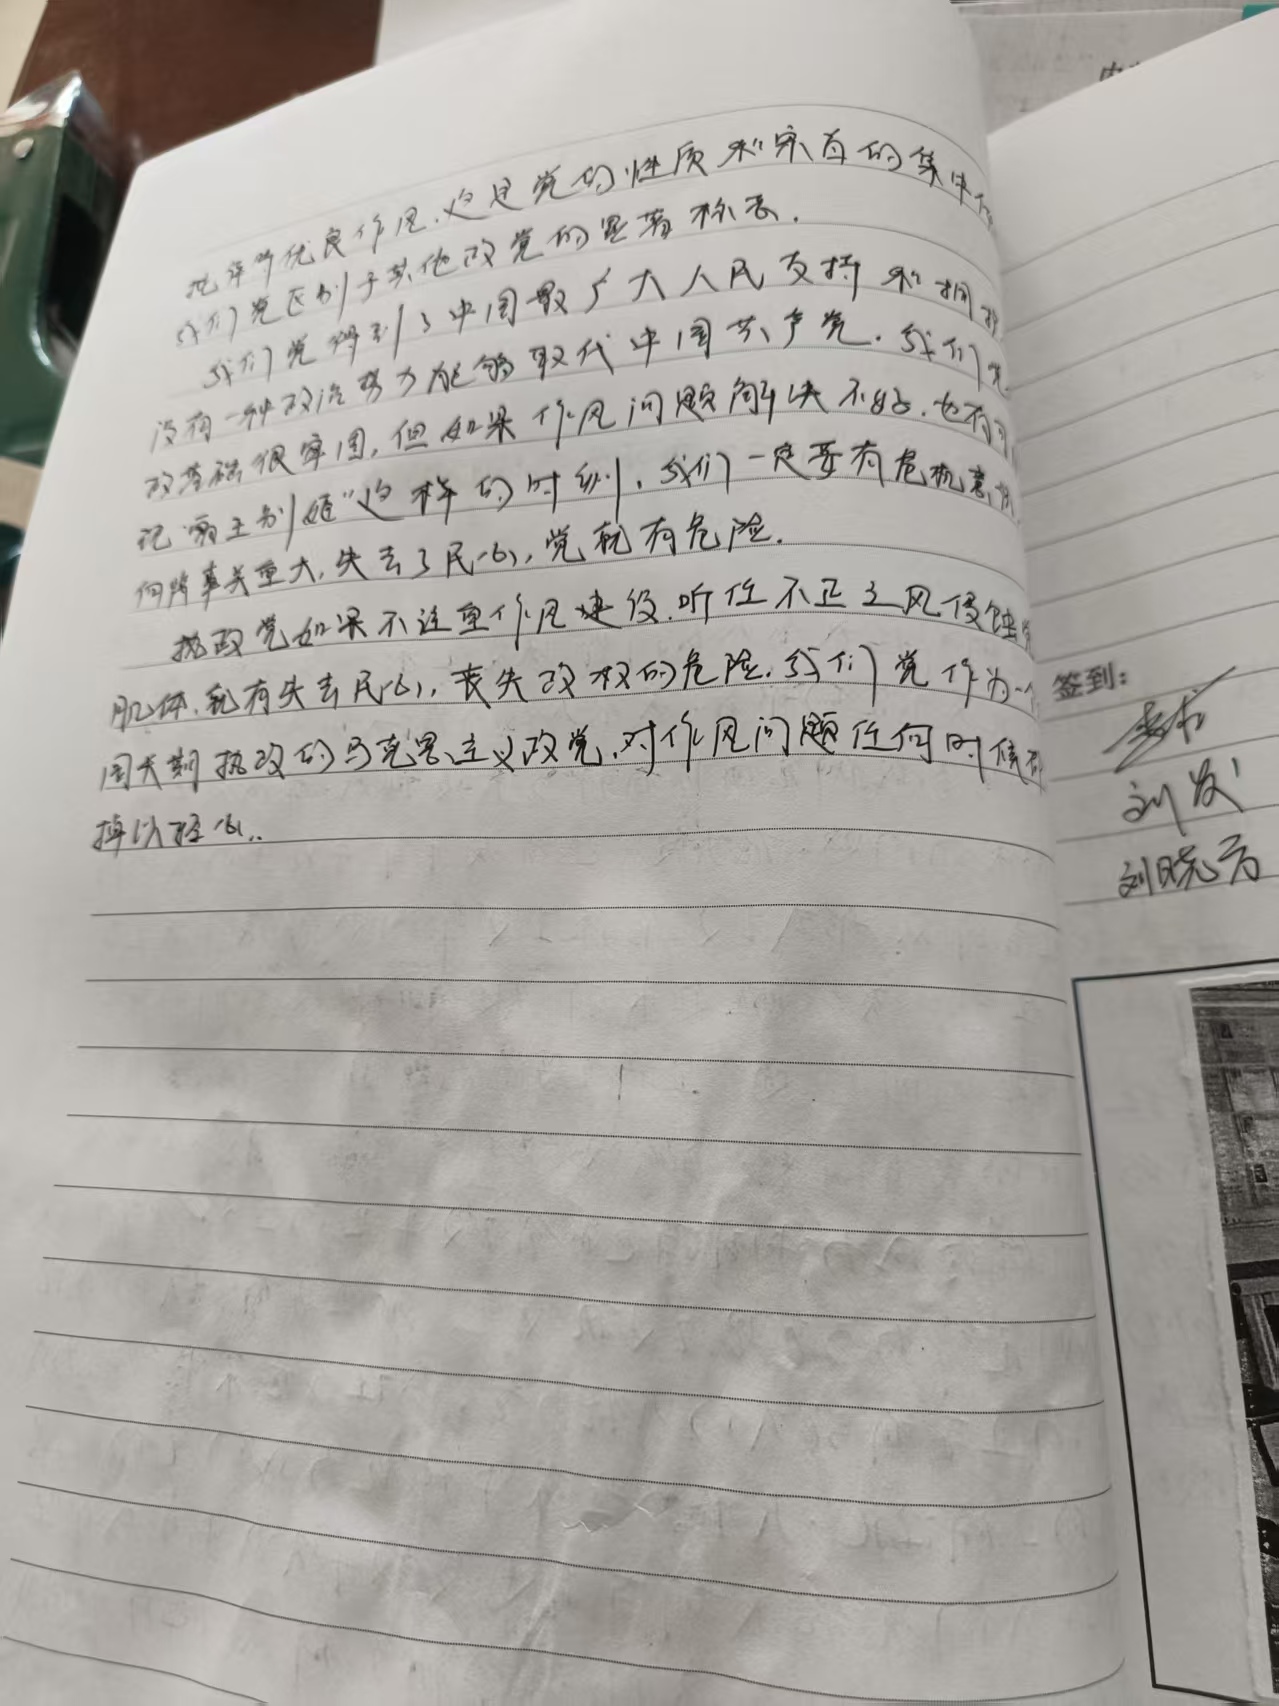 批评等优良作风.这是党的性质和宗旨的集中
我们党区别于其他政党的显著标志.
我们党得到了中国最广大人民支持和拥护
没有一种政治势力能够取代中国共产党.我们党
政基础很牢固,但如果作风问题解决不好.也有可
记霸王别姬"这样的时刻.我们一定要有危机意识
向背事关重大,失去了民心,党就有危险.
执政党如果不注重作风建设.听任不正之风侵蚀党
肌体.就有失去民心,丧失政权的危险.我们党作为一个
国长期执政的马克思主义政党.对作风问题任何时候都
掉以轻心..
签到:
刘发
刘晓芳